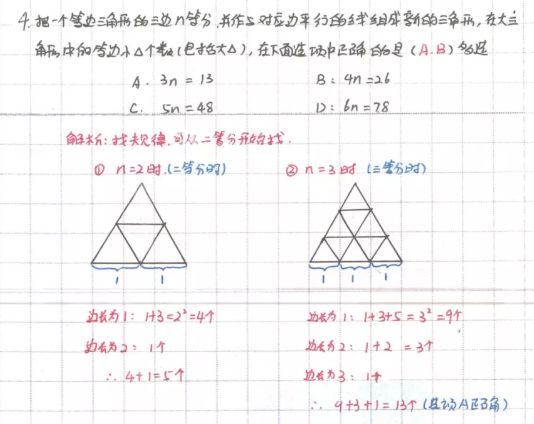 4. 把一个等边三角形的三边n等分,并作与对应边平行的线组成新的三角形,在大三
角形中的等边小△个数(包括大△),在下面选项中正确的是(A.B)多选
A. 3n=13
B: 4n=26
C. 5n=48
D: 6n=78
解析:找规律,可从二等分开始找.
① n=2时.(二等分时)
② n=3时 (三等分时)
1 1
1 1 1
边长为1: 1+3=2²=4个
边长为1: 1+3+5=3²=9个
边长为2: 1个
边长为2: 1+2=3个
∴ 4+1=5个
边长为3: 1个
∴ 9+3+1=13个(选项A正确)